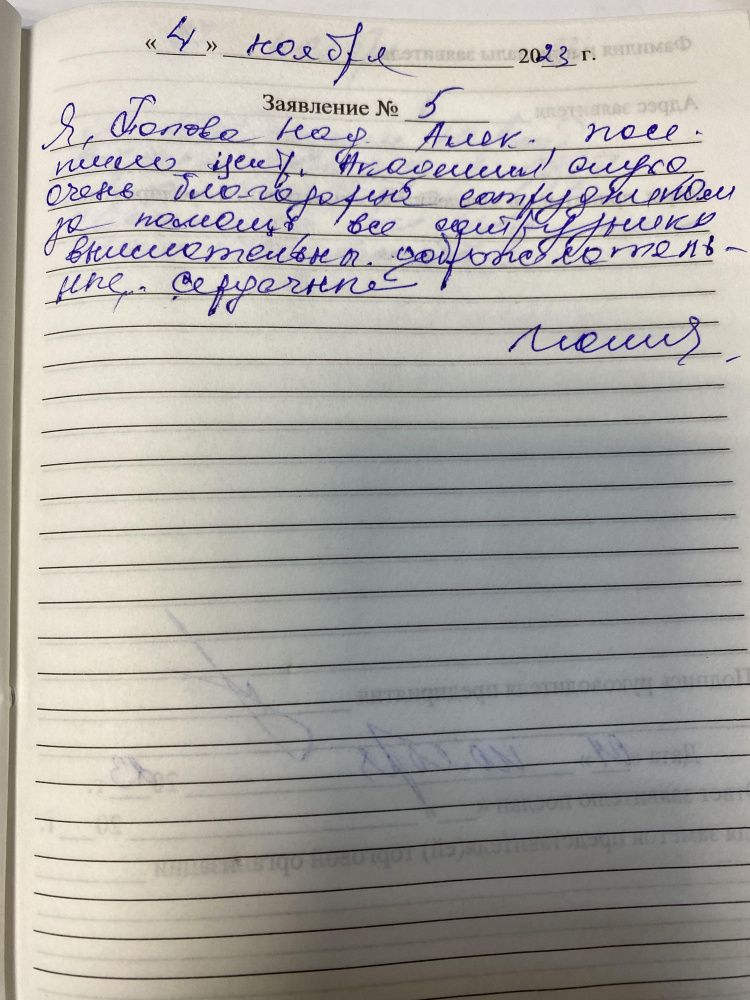 « 4 » ноября 2023 г.
Заявление № 5
Я, Попова Над. Алек., посе-
тила центр. Академия слуха
очень благодарна сотрудникам
за помощь, все сотрудники
внимательны. доброжелатель-
ные,. сердечные